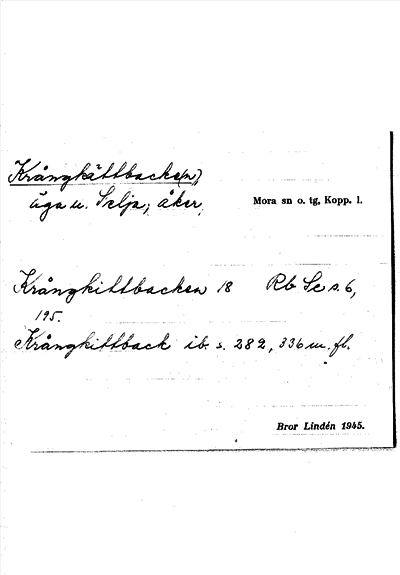 Krångkättbacke(n),
äga u. Selja; åker.
Mora sn o. tg, Kopp. l.
Krångkittbacken 18 Rb Se s. 6,
195.
Krångkittback ib. s. 282, 336 m. fl.
Bror Lindén 1945.